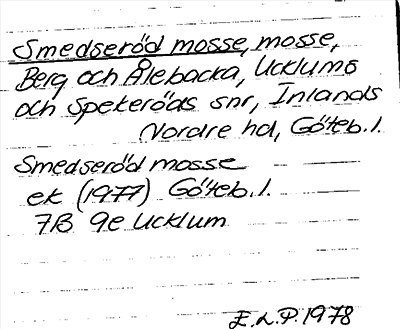 Smedseröd mosse, mosse,
Berg och Ålebacka, Ucklums
och Spekeröds snr, Inlands
Nordre hd, Göteb. l.
Smedseröd mosse
ek (1977) Göteb. l.
7B 9e Ucklum
E.L.P. 1978